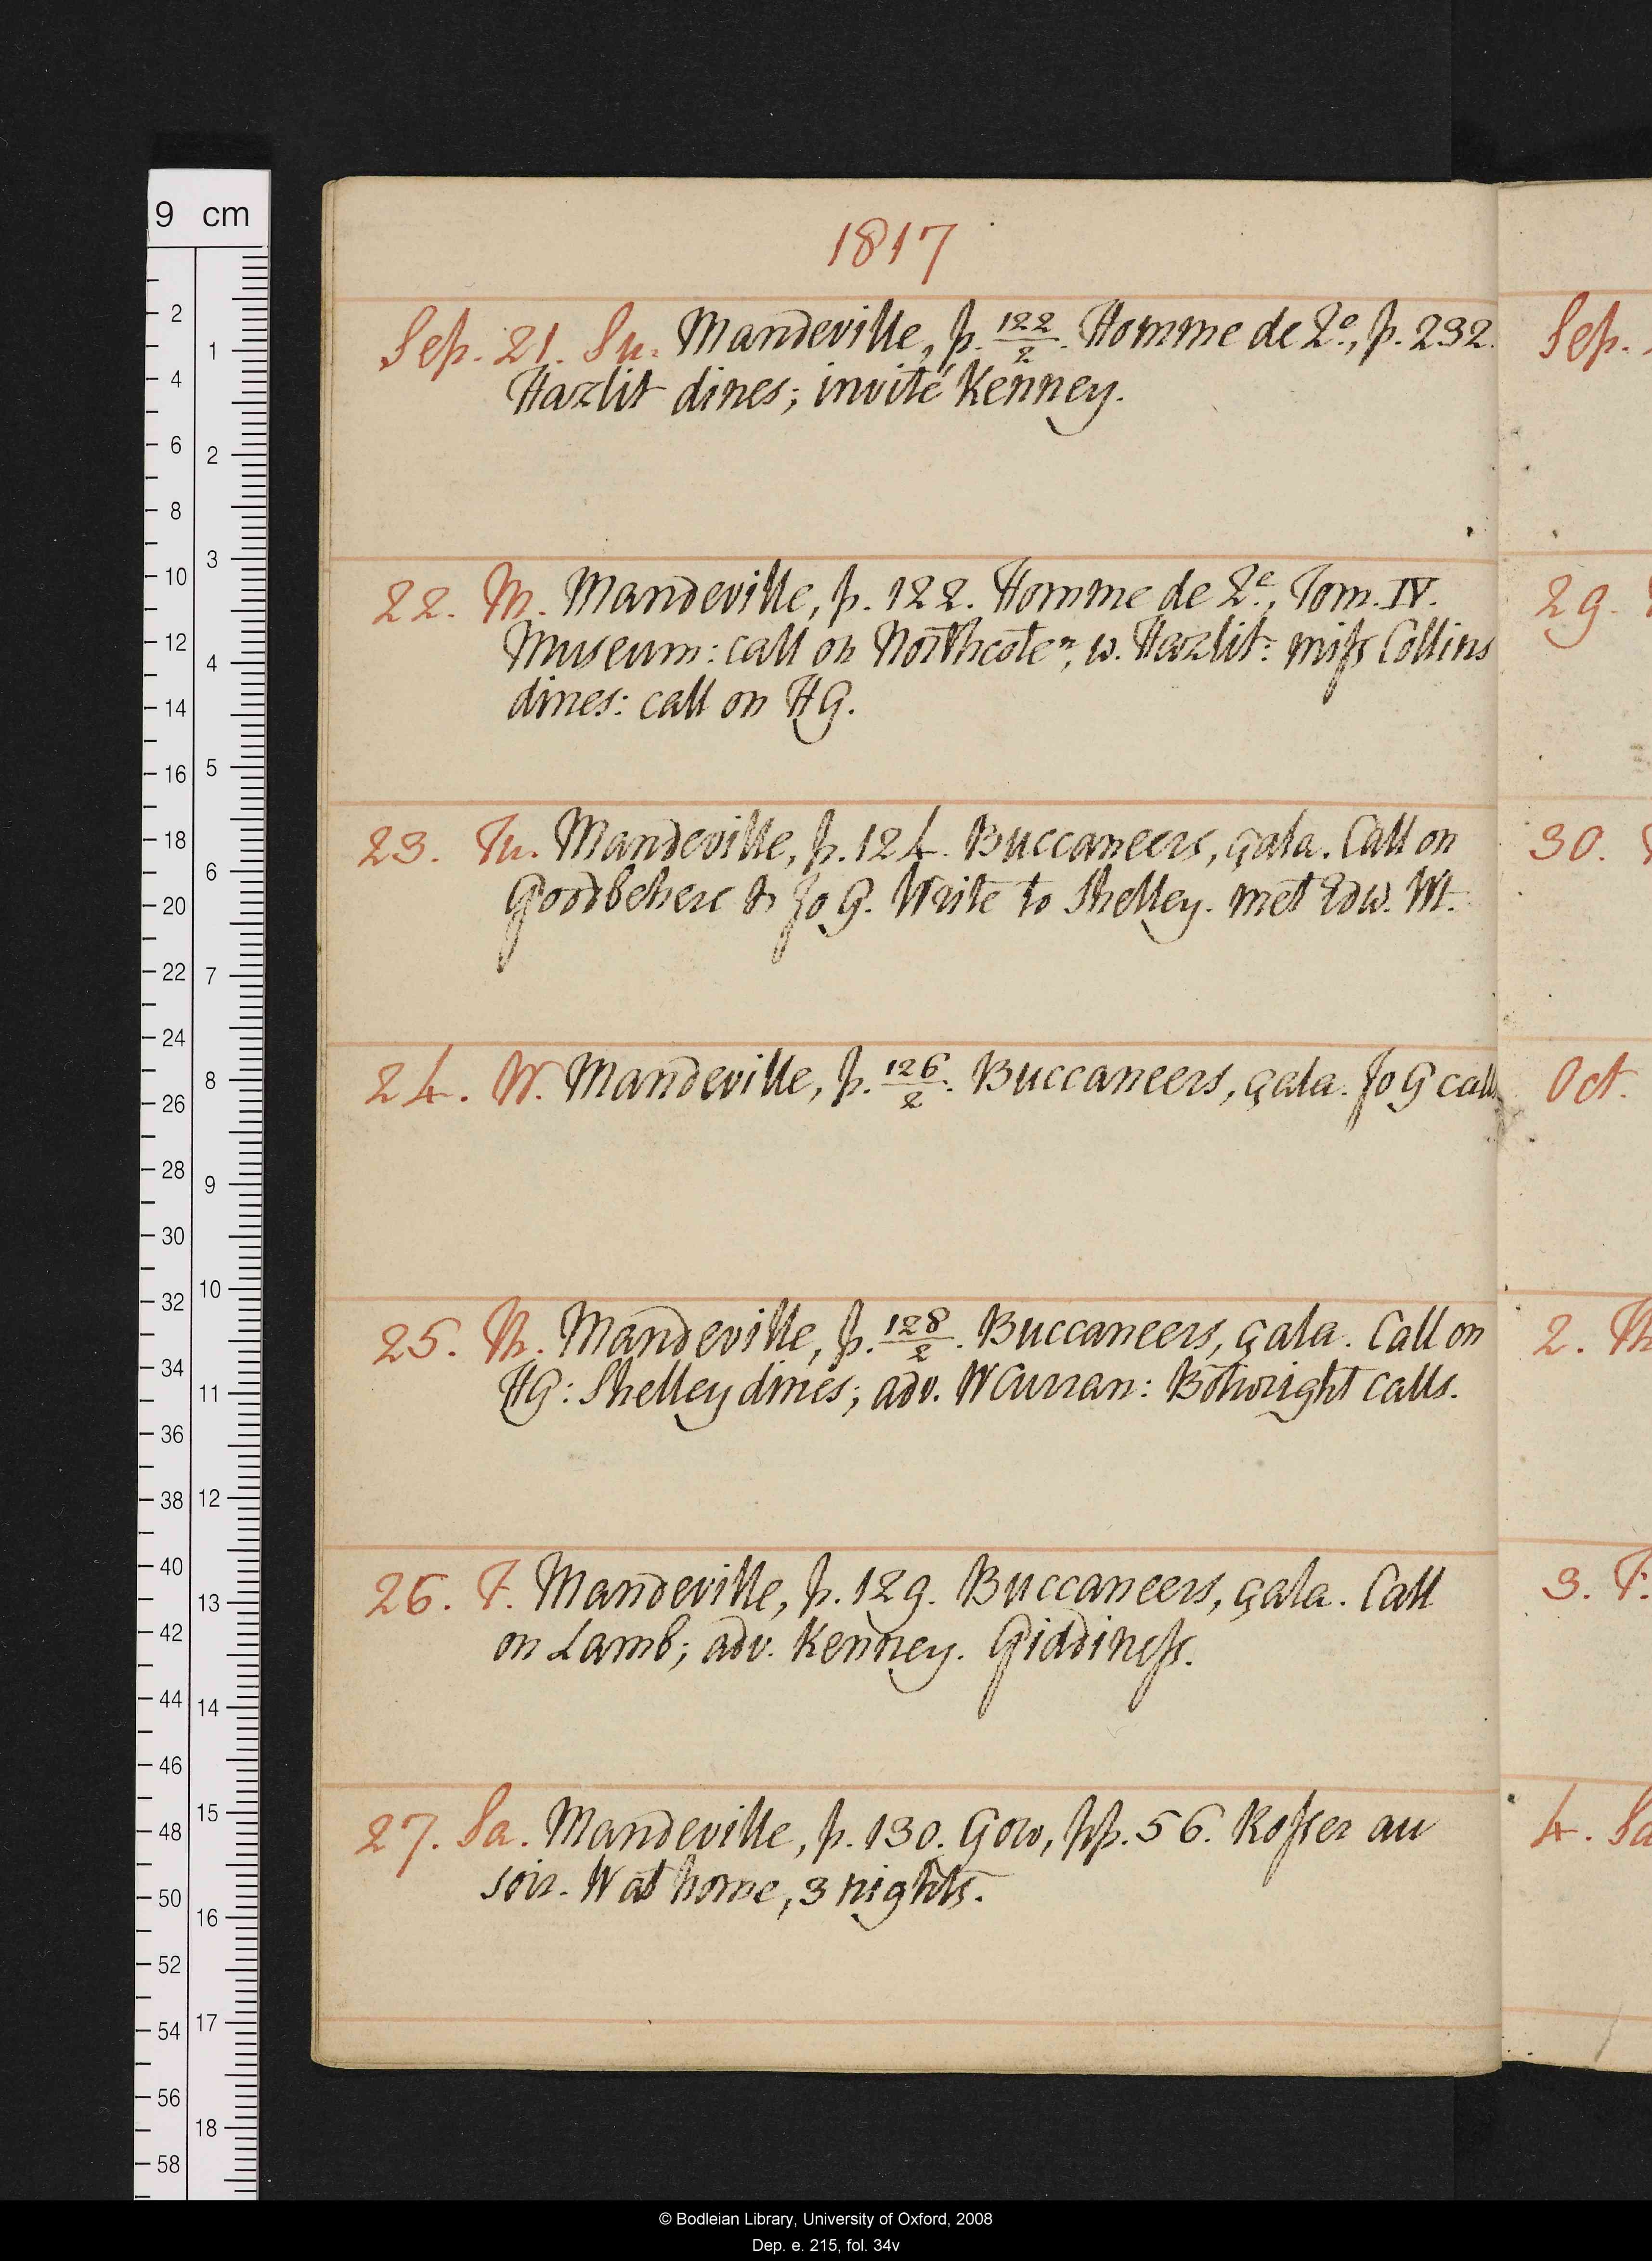 1817
Sep. 21. Su. Mandeville, p. 122/2. Homme de Qe., p. 232.
Hazlit dines; invité Kenney.
22. M. Mandeville, p. 122. Homme de Qe., Tom. IV.
Museum: call on Northcote n, w. Hazlit: miss Collins
dines: call on HG.
23. Tu. Mandeville, p. 124. Buccaneers, çala. Call on
Goodbehere & Jo G. Write to Shelley. met Edw. Wt.
24. W. Mandeville, p. 126/2. Buccaneers, çala. Jo G calls
25. Th. Mandeville, p. 128/2. Buccaneers, çala. Call on
HG: Shelley dines; adv. W Curran: Botwright calls.
26. F. Mandeville, p. 129. Buccaneers, çala. Call
on Lamb; adv. Kenney. Giddiness.
27. Sa. Mandeville, p. 130. Gow, pp. 56. Rosser au
soir. W at home, 3 nights.
Sep.
29.
30.
Oct.
2. Th
3. F.
4. Sa
9 cm
2
4
6
8
10
12
14
16
18
20
22
24
26
28
30
32
34
36
38
40
42
44
46
48
50
52
54
56
58
1
2
3
4
5
6
7
8
9
10
11
12
13
14
15
16
17
18
© Bodleian Library, University of Oxford, 2008
Dep. e. 215, fol. 34v